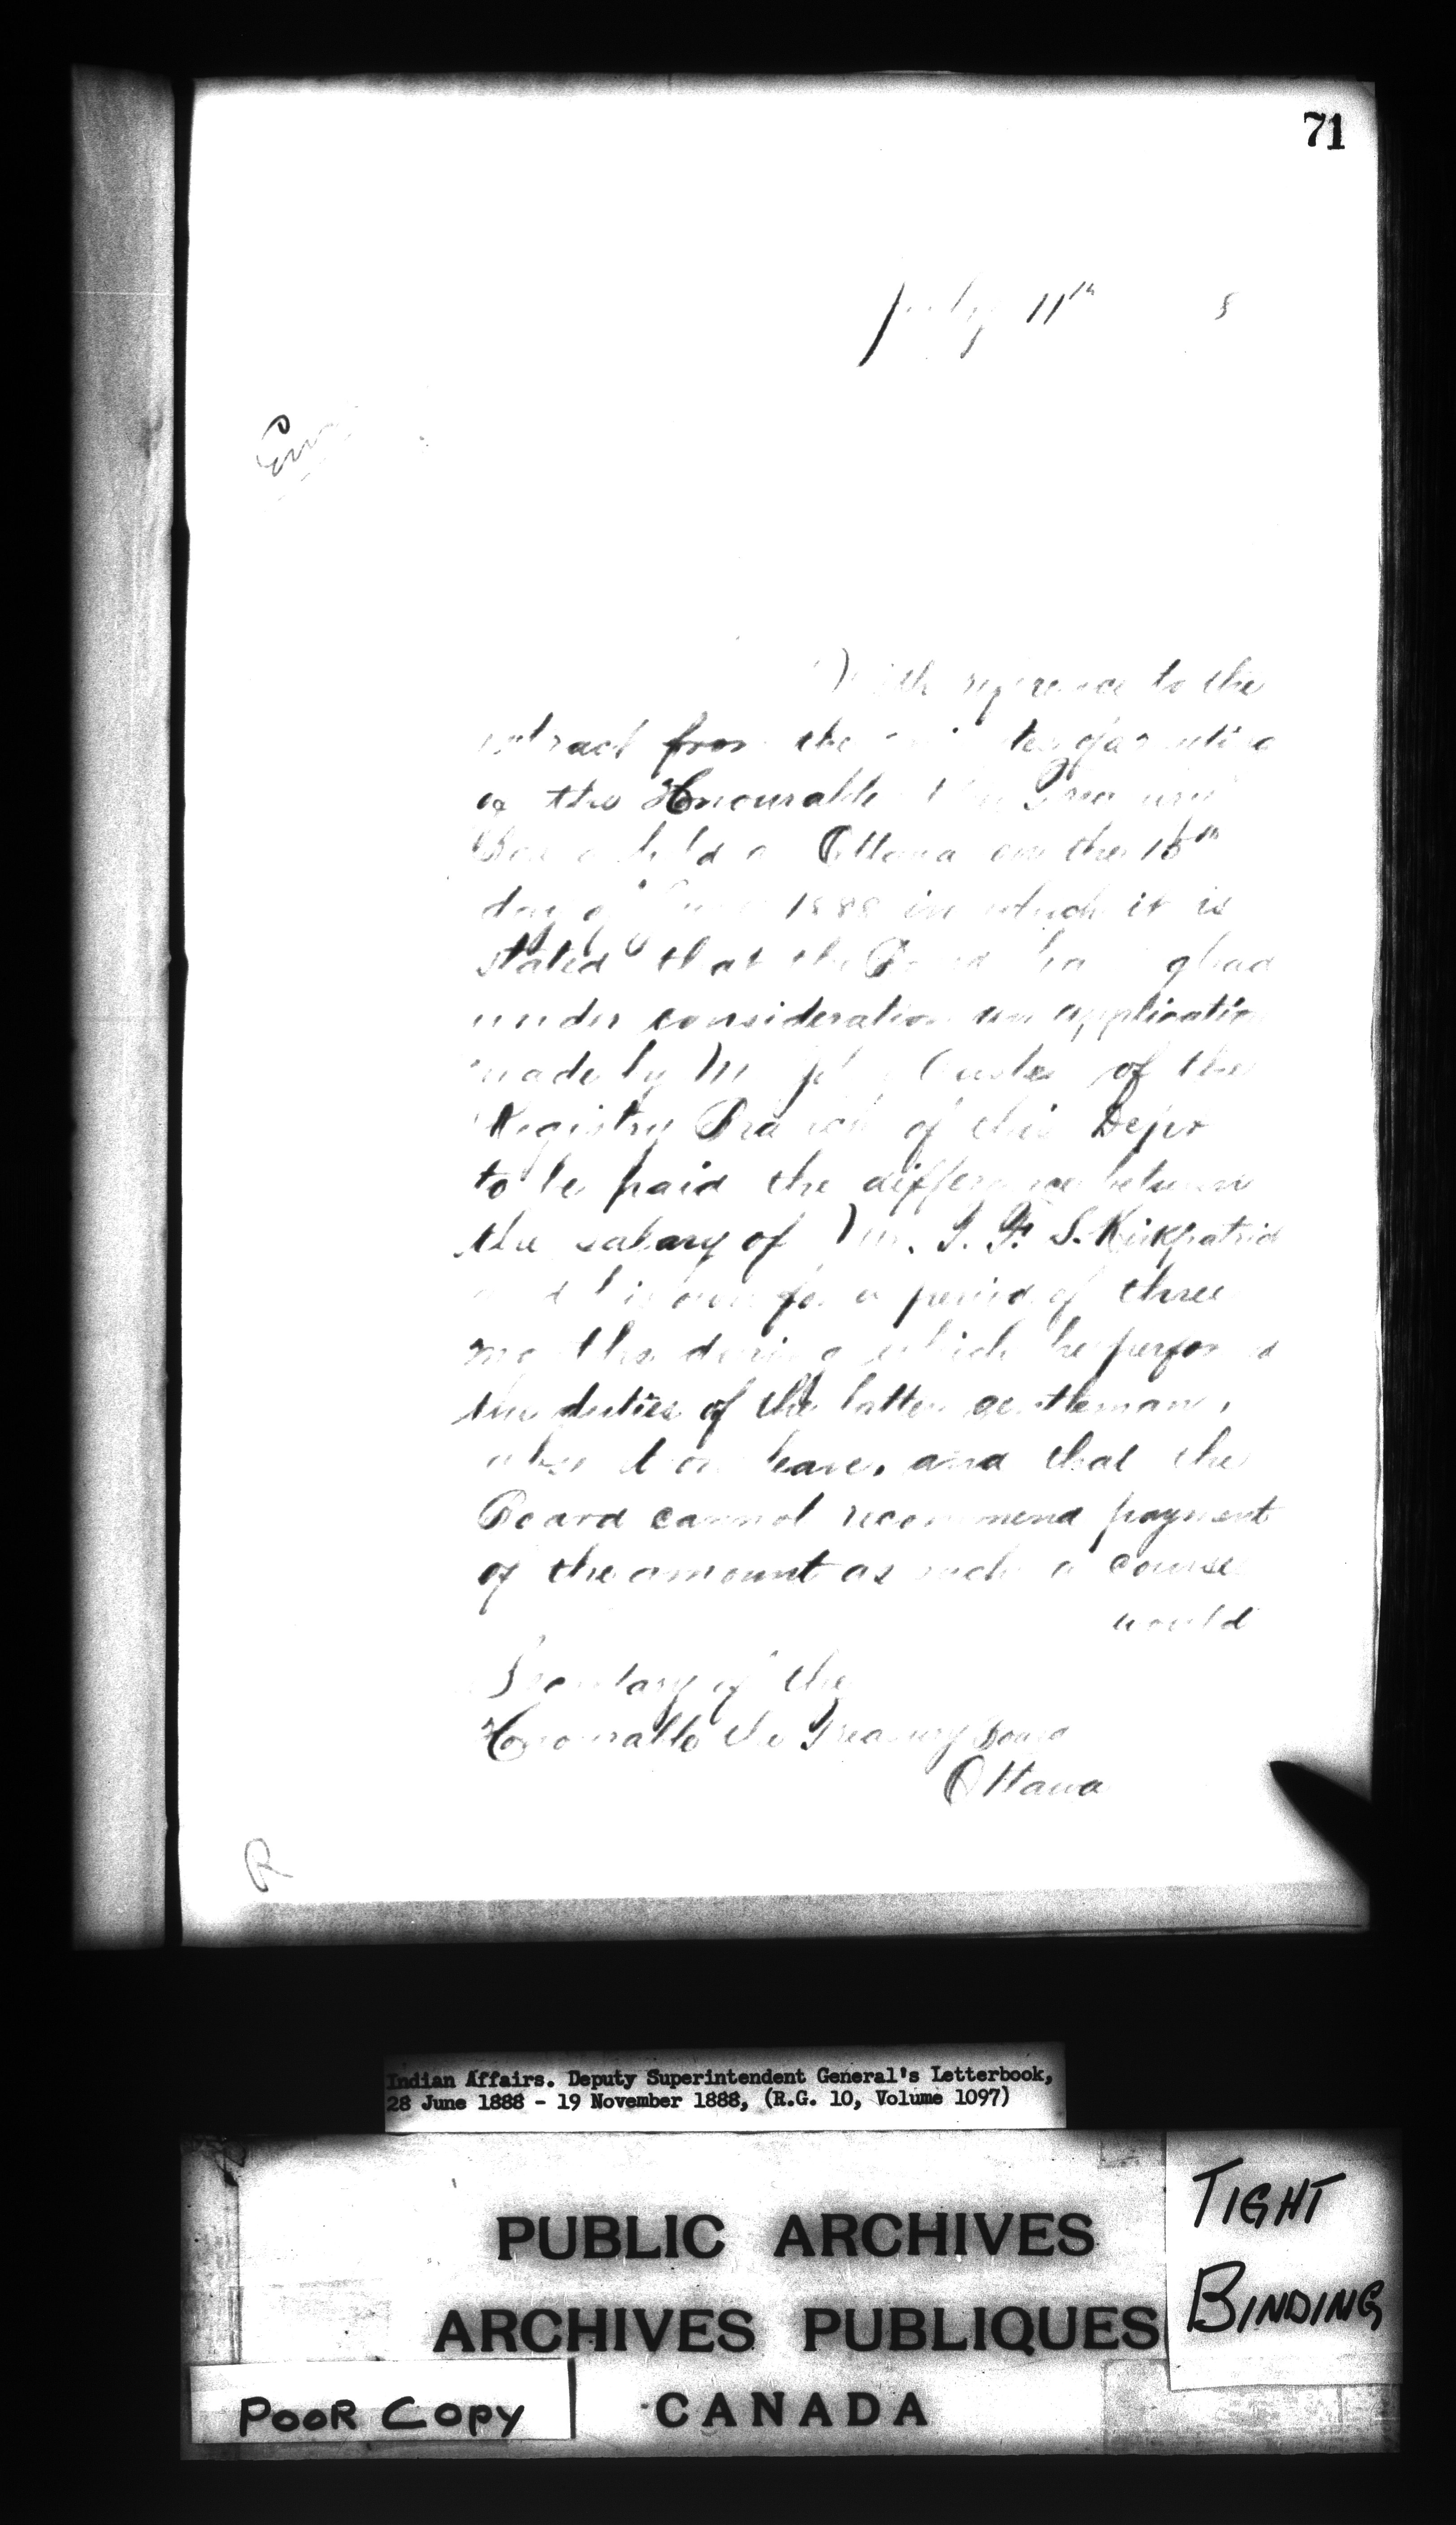 71
July 11th 8
With reference to the
extract from the minutes of a meeting
of the Honourable the Treasury
Board held at Ottawa on the 15th
day of June 1888 in which it is
stated that the Board having had
under consideration an application
made by Mr John of the
Registry Branch of this Dept
to be paid the difference between
the salary of Mr. J. F. S. Kirkpatrick
and his own for a period of three
months during which he performed
the duties of the latter gentleman,
absent on leave, and that the
Board cannot recommend payment
of the amount as such a course
would
Secretary of the
Honourable the Treasury Board
Ottawa
R
Indian Affairs. Deputy Superintendent General's Letterbook,
28 June 1888 - 19 November 1888, (R.G. 10, Volume 1097)
PUBLIC ARCHIVES
ARCHIVES PUBLIQUES
CANADA
TIGHT
BINDING
POOR COPY